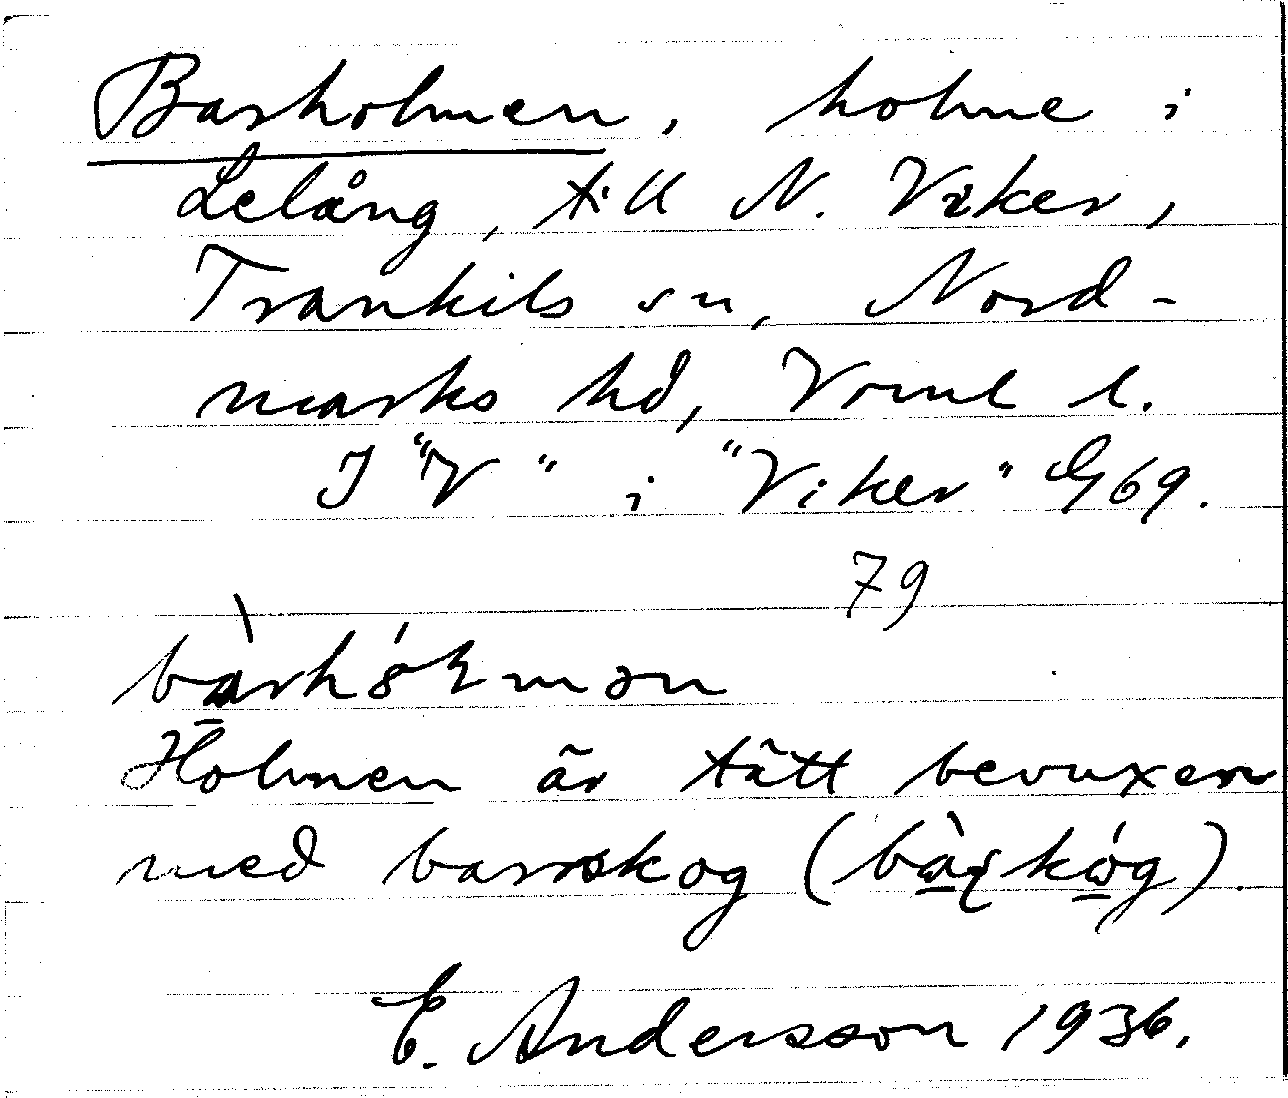 Barholmen, holme i
Lelång, till N. Viker,
Trankils sn, Nord-
marks hd, Vrml l.
I "V" i "Viker" G 69.
79
Holmen är tätt bevuxen
med barrskog
E. Andersson 1936.